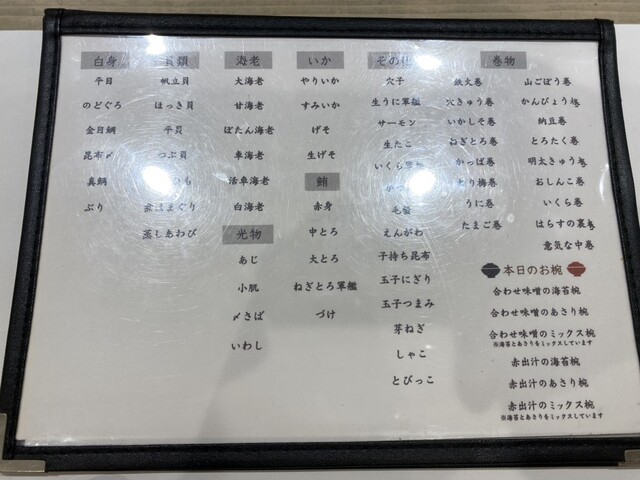 白身
平目
のどぐろ
金目鯛
昆布〆
真鯛
ぶり
貝類
帆立貝
ほっき貝
平貝
つぶ貝
も
煮はまぐり
蒸しあわび
海老
大海老
甘海老
ぼたん海老
車海老
活車海老
白海老
光物
あじ
小肌
〆さば
いわし
いか
やりいか
すみいか
げそ
生げそ
鮪
赤身
中とろ
大とろ
ねぎとろ軍艦
づけ
その他
穴子
生うに軍艦
サーモン
生たこ
いくら軍艦
かつ
毛蟹
えんがわ
子持ち昆布
玉子にぎり
玉子つまみ
芽ねぎ
しゃこ
とびっこ
巻物
鉄火巻
穴きゅう巻
いかしそ巻
ねぎとろ巻
かっぱ巻
とり梅巻
うに巻
たまご巻
山ごぼう巻
かんぴょう巻
納豆巻
とろたく巻
明太きゅう巻
おしんこ巻
いくら巻
はらすの裏巻
意気な中巻
本日のお椀
合わせ味噌の海苔椀
合わせ味噌のあさり椀
合わせ味噌のミックス椀
※海苔とあさりをミックスしています
赤出汁の海苔椀
赤出汁のあさり椀
赤出汁のミックス椀
※海苔とあさりをミックスしています